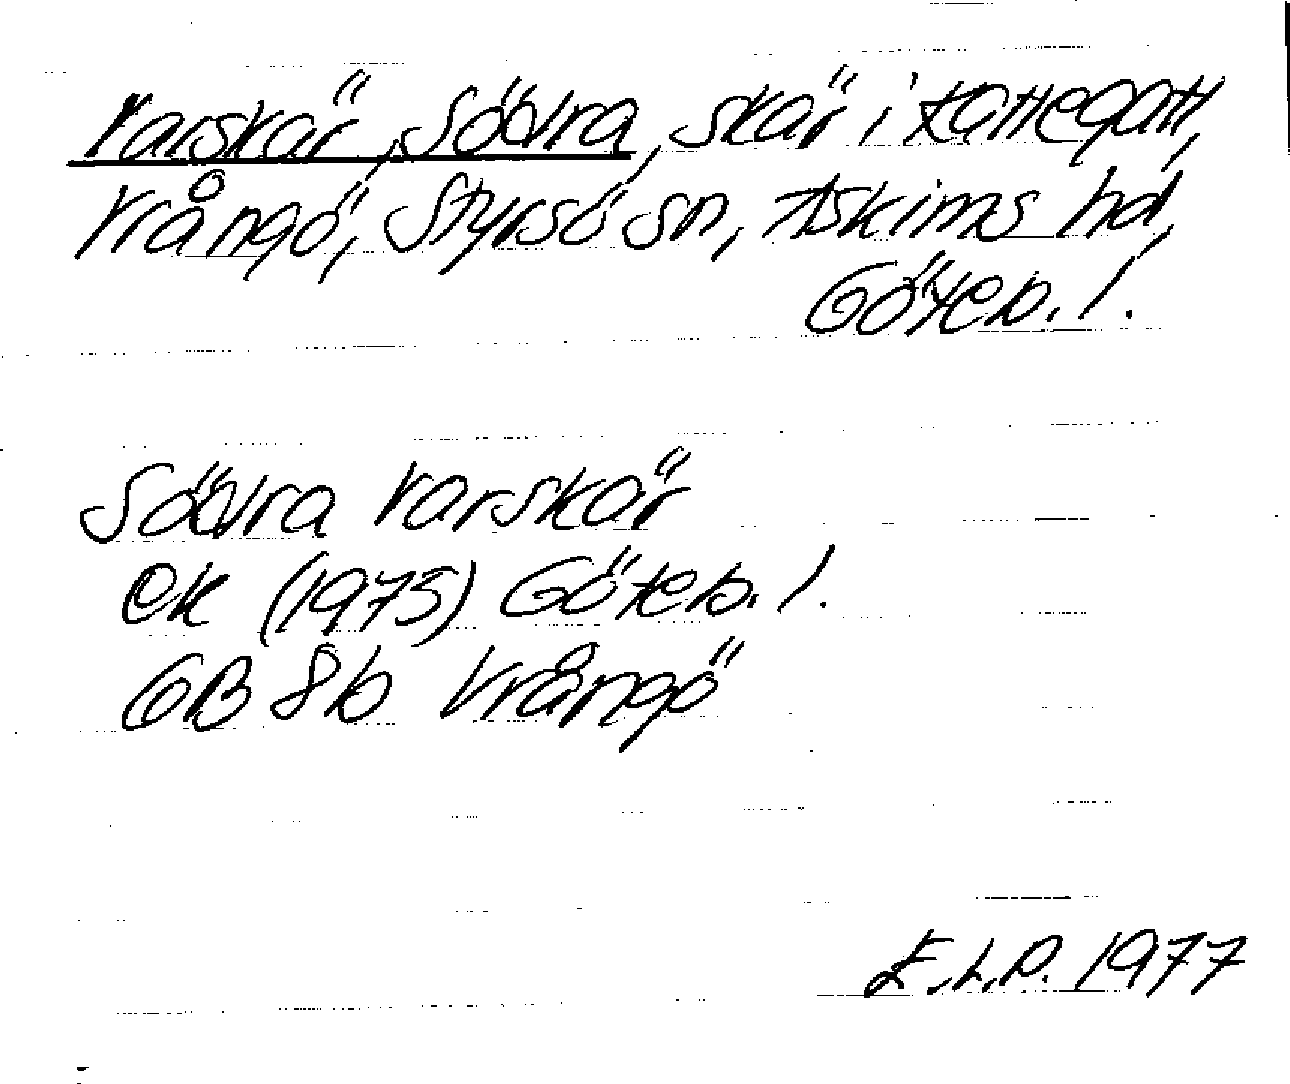 Varskär, Södra, skär i Kattegatt,
Vrångö, Styrsö sn, Askims hd,
Göteb. l.
Södra Varskär
ek (1975) Göteb. l.
GB 8b Vrångö
E.L.P. 1977